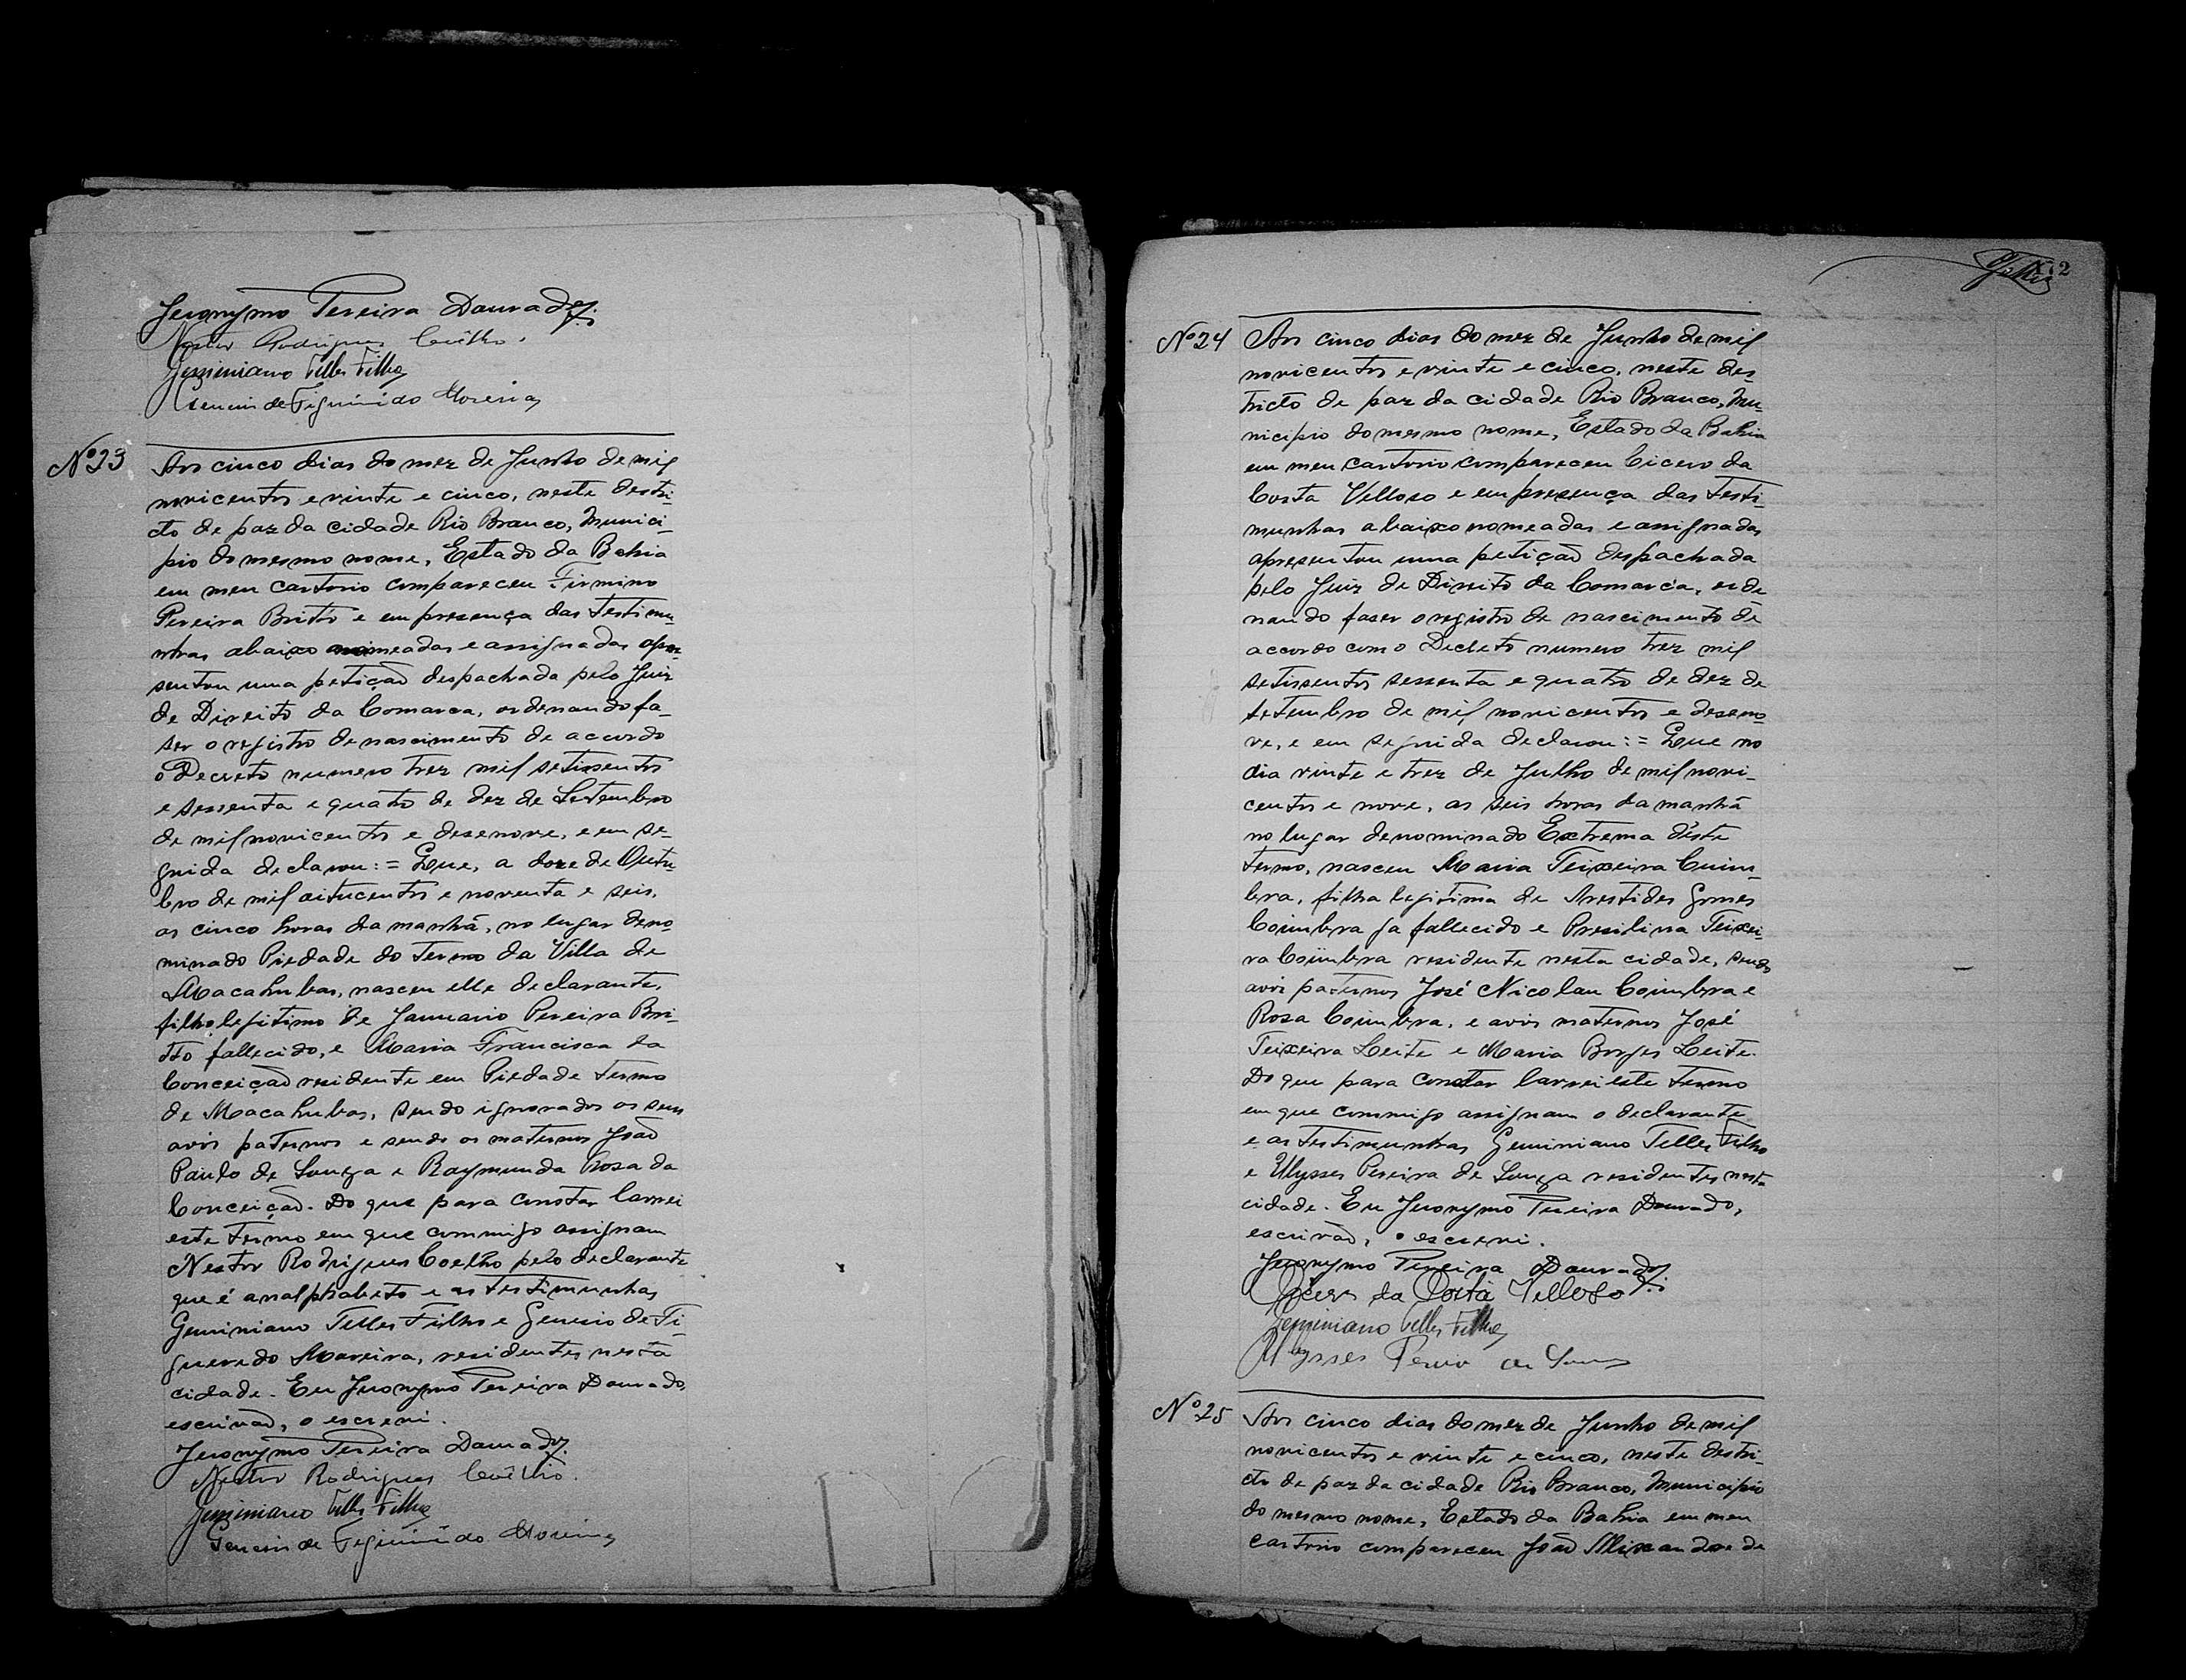 Jeronymo Pereira Dourado
Nestor Rodrigues Coêlho.
Geminiano Telles Filho
Genesio de Figueirêdo Moreira
Nº 23
Aos cinco dias do mez de Junho de mil
novicentos e vinte e cinco, neste destri-
cto de paz da cidade Rio Branco, Munici-
pio do mesmo nome, Estado da Bahia
em meu cartorio compareceu Firmino
Pereira Britto e em presença das testimu-
nhas abaixo nomeadas e assignadas apre-
sentou uma petição despachada pelo Juiz
de Direito da Comarca, ordenando fa-
ser o registro de nascimento de accordo
o Decreto numero trez mil setissentos
e sessenta e quatro de dez de Setembro
de mil novicentos e desenove, e em se-
guida declarou: = Que, a doze de Outu-
bro de mil oitucentos e noventa e seis,
as cinco horas da manhã, no lugar deno
minado Piedade do Termo da Villa de
Macahubas, nasceu elle declarante,
filho legitimo de Januario Pereira Bri-
tto fallecido, e Maria Francisca da
Conceição residente em Piedade termo
de Macahubas, sendo ignorados os seus
avós paternos e sendo os maternos João
Paulo de Souza e Raymunda Rosa da
Conceição. Do que para constar lavrei
este termo em que commigo assignam
Nestor Rodrigues Coelho pelo declarante
que é analphabeto e as testimunhas
Geminiano Telles Filho e Genesio de Fi-
gueredo Moreira, residentes nesta
cidade. Eu Jeronymo Pereira Dourado,
escrivão, o escrevi.
Jeronymo Pereira Dourado
Nestor Rodrigues Coêlho.
Geminiano Telles Filho
Genesio de Figueirêdo Moreira
172
Nº 24
Aos cinco dias do mez de Junho de mil
novicentos e vinte e cinco, neste des-
tricto de paz da cidade Rio Branco, Mu-
nicipio do mesmo nome, Estado da Bahia
em meu cartorio compareceu Cicero da
Costa Velloso e em presença das testi-
munhas abaixo nomeadas e assignadas
apresentou uma petição despachada
pelo Juiz de Direito da Comarca, orde
nando faser o registro de nascimento de
accordo com o Decreto numero trez mil
setissentos sessenta e quatro de dez de
setembro de mil novicentos e deseno-
ve, e em seguida declarou: = Que no
dia vinte e trez de Julho de mil novi-
centos e nove, as seis horas da manhã
no lugar denominado Extrema d'este
termo, nasceu Maria Teixeira Cuim-
bra, filha legitima de Arestides Gomes
Coimbra ja fallecido e Presilina Teixei-
ra Coimbra residente nesta cidade, sendo
avós paternos José Nicolau Coimbra e
Rosa Coimbra, e avós maternos José
Teixeira Leite e Maria Borges Leite.
Do que para constar lavrei este termo
em que commigo assignam o declarante
e as testimunhas Geminiano Telles Filho
e Ulysses Pereira de Souza residentes nesta
cidade. Eu Jeronymo Pereira Dourado,
escrivão, o escrevi.
Jeronymo Pereira Dourado
Cicero da Costa Velloso
Geminiano Telles Filho
Ulysses Pereira de Souza
Nº 25
Aos cinco dias do mez de Junho de mil
novicentos e vinte e cinco, neste destri-
cto de paz da cidade Rio Branco, Municipio
do mesmo nome, Estado da Bahia em meu
cartorio compareceu João Alixandre de